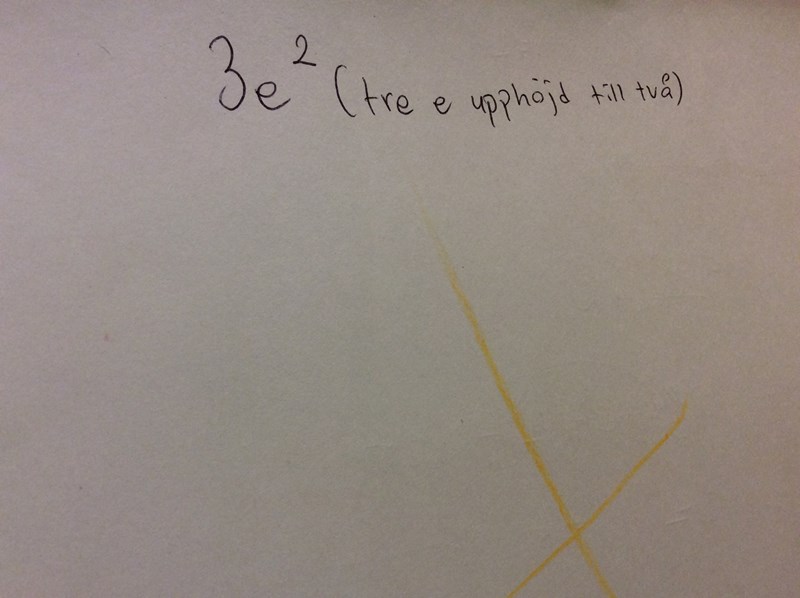 3e² (tre e upphöjd till två)